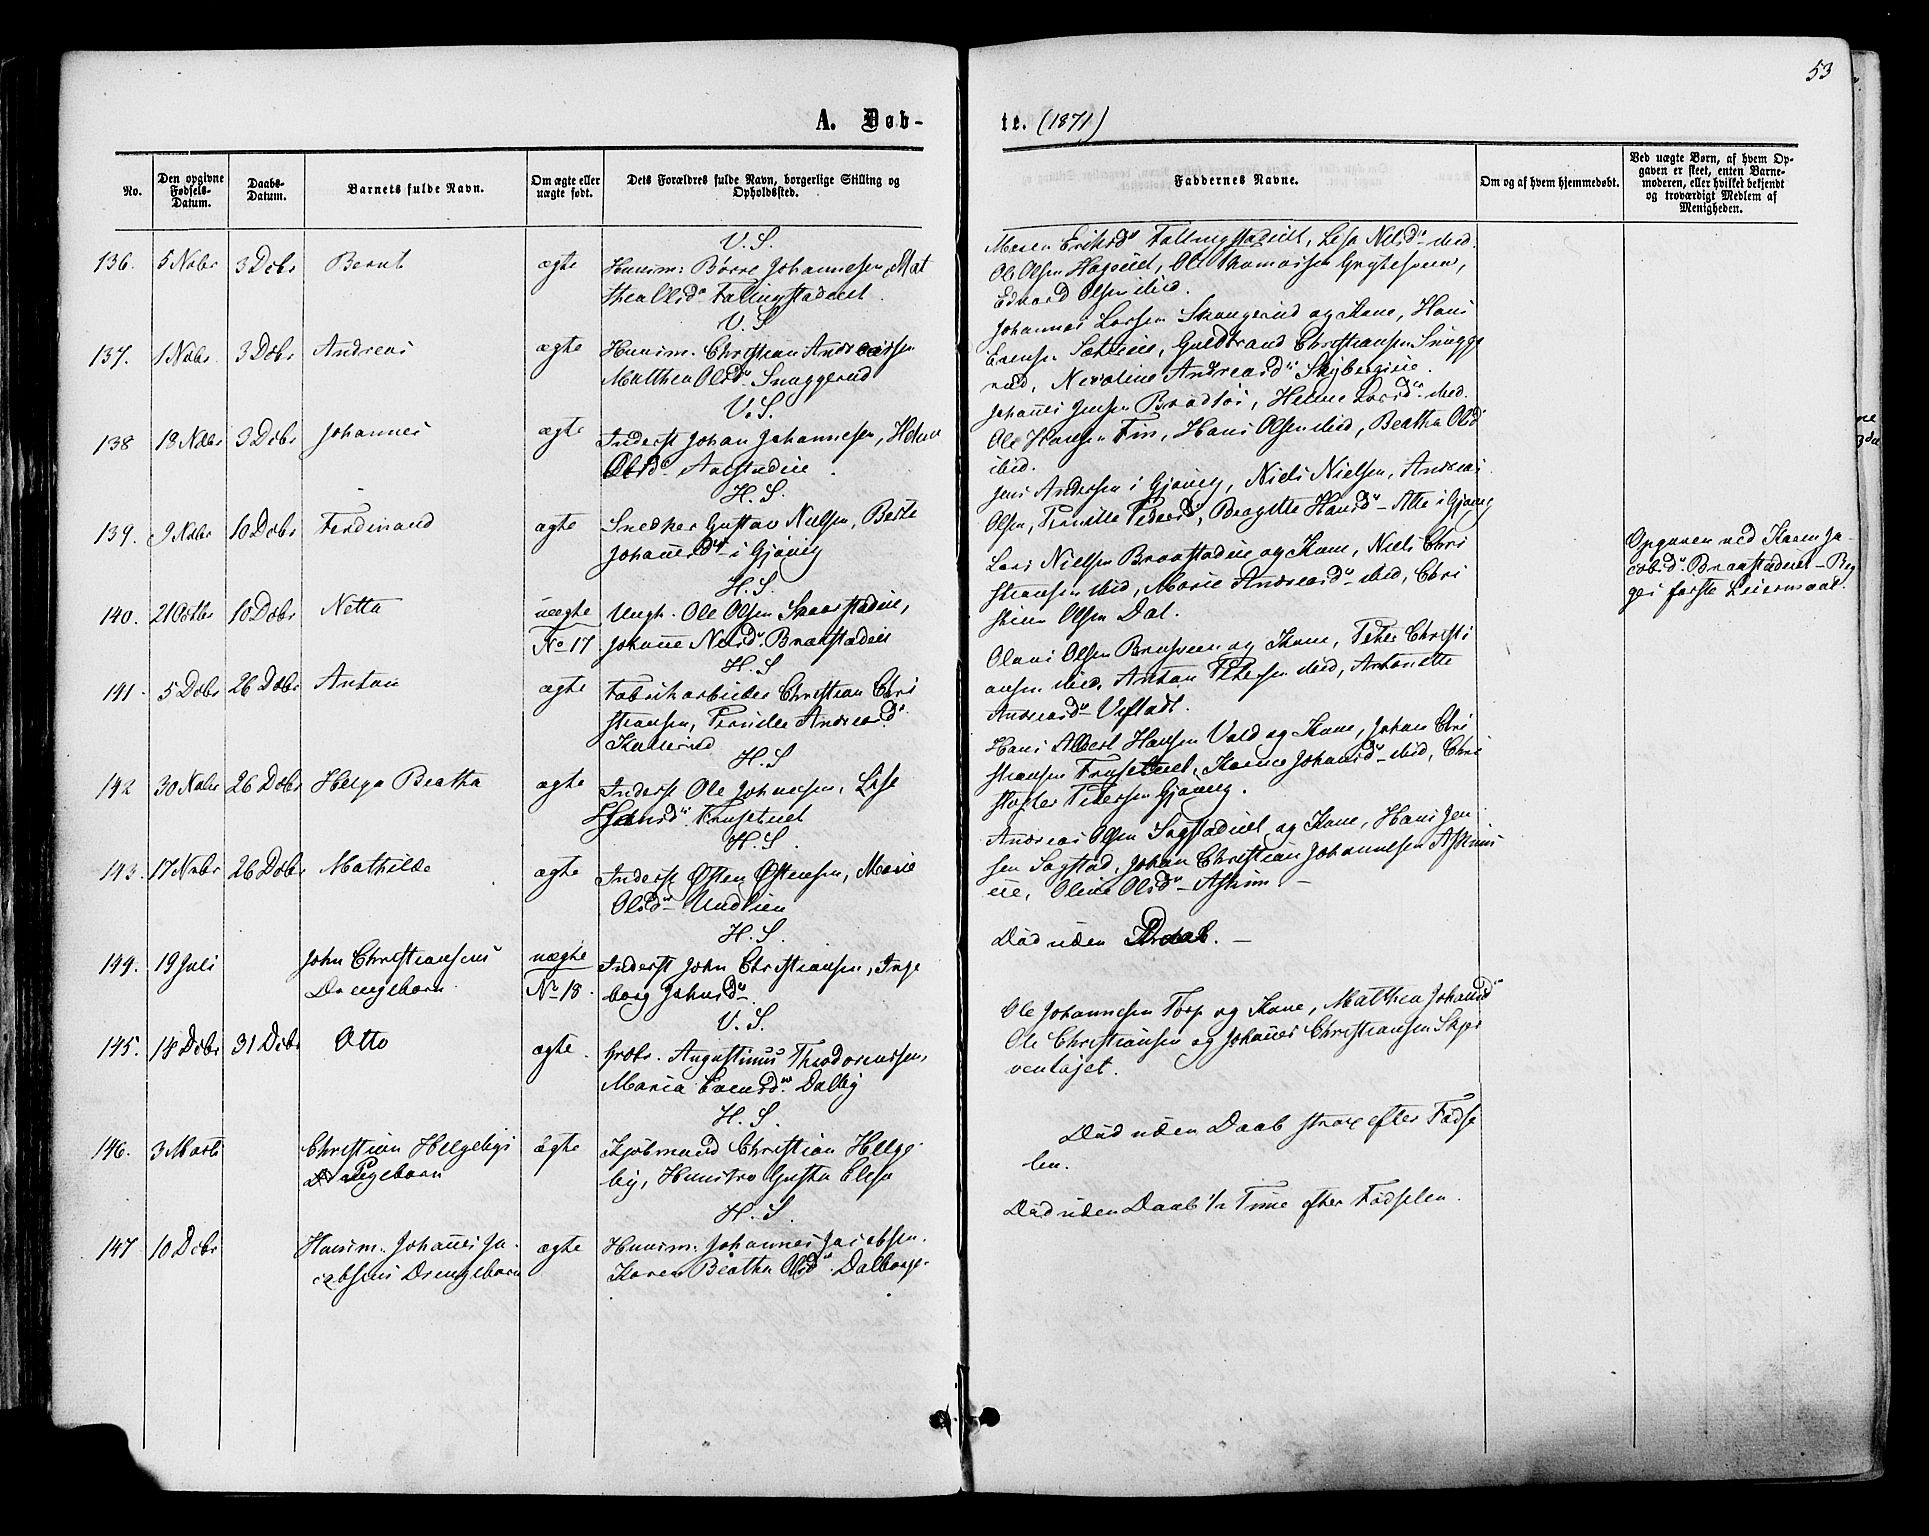 53
A. Døb-
te. (1871)
No.
Den opgivne Fødsels-Datum.
Daabs-Datum.
Barnets fulde Navn.
Om ægte eller uægte født.
Dets Forældres fulde Navn, borgerlige Stilling og Opholdssted.
Faddernes Navne.
Om og af hvem hjemmedøbt.
Ved uægte Børn, af hvem Op-
gaven er skeet, enten Barne-
moderen, eller hvilket bekjendt
og troværdigt Medlem af
Menigheden.
V. S.
136. 5 Nobr 3 Dcbr Bernt ægte Huusm: Børre Johannesen, Mat
thea Olsdr Fallingstadeiet.
Maren Eriksdr Fallingstadeiet, Lisa Nilsdr ibid.
Ole Olsen Hageiet, Ole Thomassen
Edvard Olsen ibid.
V. S.
137. 1 Nobr. 3 Dcbr Andreas ægte Huusm. Christian Andreassen
Matthea Olsdr Snuggerud
Johannes Larsen Skougerud og Kone, Hans
Evensen Sætheie, Guldbrand Christiansen Snugge
rud, Nicoline Andreasdr Skybergeie.
V. S.
138 19 Nobr 3 Dcbr Johannes ægte Inderst Johan Johannesen, Helene
Olsdr Aalstadeie.
Johannes Jensen Bradløs, Helene Larsdr ibid.
Ole Hansen Fin, Hans Olsen ibid, Beatha Olsdr
ibid.
H. S.
139. 9 Nobr 10 Dcbr Ferdinand ægte Snedker Gustav Nielsen, Berte
Johannesdr i Gjøvig
Jens Andersen i Gjøvig, Niels Nielsen, Andreas
Olsen, Pernille Pedersdr, Bergitte Hansdr - Alle i Gjøvig
H. S.
140. 21 Octbr 10 Dcbr Netta uægte
No 17
Ungk. Ole Olsen Skaarstadeie,
Johanne Nilsdr Braastadeie
Lars Nielsen Braastadeie og Kone, Niels Chri
stiansen ibid, Marie Andreasdr ibid, Chri
stian Olsen Dal.
Opgaven ved Karen Ja-
cobsdr Braastadeiet - Beg-
ges første Leiermaal.
H. S
141. 5 Dcbr 26 Dcbr Anton ægte Fabrikarbeider Christian Chri
stiansen, Pernille Andreasdr
Kallerud
Olaus Olsen Bruveen og Kone, Peter Christi
ansen ibid, Anton Petersen ibid, Antonette
Andreasdr Vestadt.
H. S
142 30 Nobr 26 Dcbr Helga Beatha ægte Inderst Ole Johnesen, Lise
Hansdr Fruseteiet
Hans Albert Hansen Vold og Kone, Johan Chri
stiansen Fruseteiet, Karine Johansdr ibid, Chri
stopfer Petersen Gjøveg.
H. S.
143. 17 Nobr 26 Dcbr Mathilde ægte Inderst Østen Østensen, Marie
Olsdr Undlien
Andreas Olsen Sogstadeiet og Kone, Hans Jen
sen Sogstad, Johan Christian Johannesen Askim
eie, Oline Olsdr Askim. -
H. S.
144. 19 Juli John Christiansens
Drengebarn uægte
No 18.
Inderst John Christiansen, Inge
borg Johnsdr
Død uden Daab. -
V. S.
145. 18 Dcbr 31 Dcbr Otto ægte. Grdbr. Augustinus Theodorussen,
Maria Evensdr Dalby
Ole Johannesen Torp og Kone, Matthea Johansdr
Ole Christiansen og Johannes Christiansen Skjer
ventøjet.
H. S.
146. 3 Marts Christian Helgebys
Pigebarn ægte Kjøbmand Christian Helge-
by, Hustro Gusta Elisa
Død uden Daab strax efter Fødse
len.
H. S.
147 10 Dcbr Huusm. Johannes Ja-
cobsens Drengebarn ægte Huusm. Johannes Jacobsen.
Karen Beatha Olsdr Dalborge.
Død uden Daab 1/2 Time efter Fødselen.